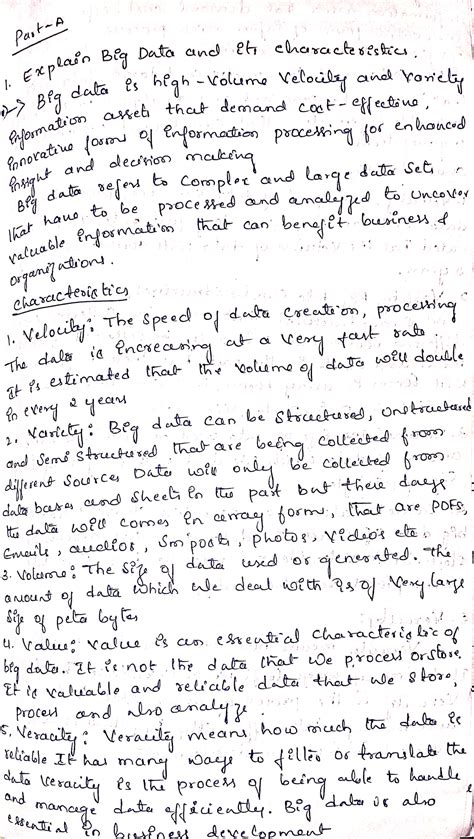 Part-A
1. Explain Big Data and its characteristics.
Big data is high-volume velocity and variety
information assets that demand cost-effective,
innovative forms of information processing for enhanced
insight and decision making
Big data refers to complex and large data sets
that have to be processed and analyzed to uncover
valuable information that can benefit business &
organizations.
characteristics
1. Velocity: The speed of data creation, processing
The data is increasing at a very fast rate
It is estimated that the volume of data will double
in every 2 years
2. Variety: Big data can be structured, unstructured
and semi structured that are being collected from
different sources Data will only be collected from
data bases and sheets in the past but these days
the data will comes in array form, that are PDFs,
Emails, audios, Sm posts, photos, videos etc.
3. Volume: The size of data used or generated. The
amount of data which we deal with is of very large
size of peta bytes
4. Value: value is an essential characteristic of
big data. It is not the data that we process or store.
It is valuable and reliable data that we store,
process and also analyze
5. Veracity: Veracity means how much the data is
reliable It has many ways to filter or translate the
data veracity is the process of being able to handle
and manage data efficiently. Big data is also
essential in business development